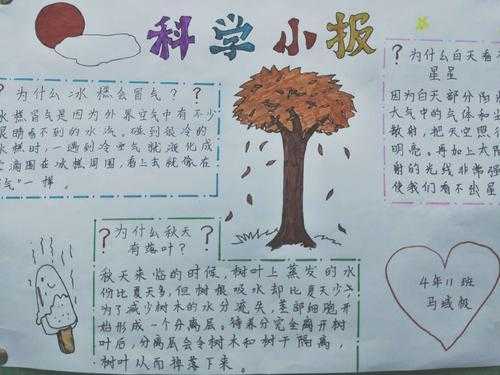 科学小报
? 为什么冰糕会冒气? ?
冰糕冒气是因为外界空气中有不少
眼睛看不到的水汽。碰到很冷的
冰糕时,一遇到冷空气就液化成
小滴围在冰糕周围,看上去就像在
冒气"一样。
? 为什么白天看不
星星
因为白天部分阳光
大气中的气体和尘
散射,把天空照
明亮。再加上太阳
射的光线非常强
使我们看不到星
? 为什么秋天 ?
有落叶?
秋天来临的时候,树叶上蒸发的水
份比夏天多,但树根吸水却比夏天少。
为了减少树木的水分流失,茎部细胞开
始形成一个分离层。待养分完全离开树
叶后,分离层会令树木和树干隔离,
树叶从而掉落下来。
4年11班
马